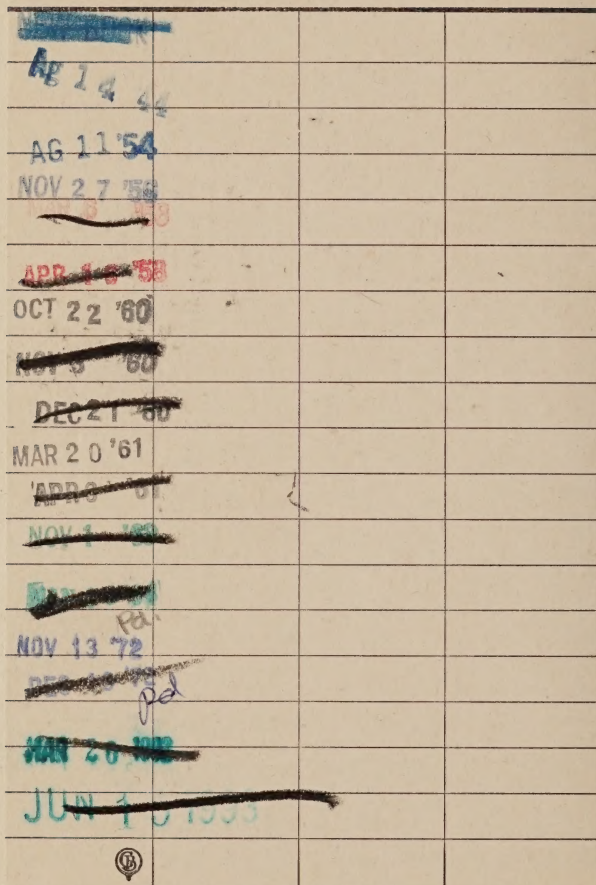 Ag 14 44
AG 11 '54
NOV 27 '56
MAR 8 '58
APR 16 '58
OCT 22 '60
NOV 5 '60
DEC 21 '60
MAR 20 '61
APR '61
NOV 1
pd.
NOV 13 '72
DEC '72
pd
MAR 26 1992
JUN 1 1993